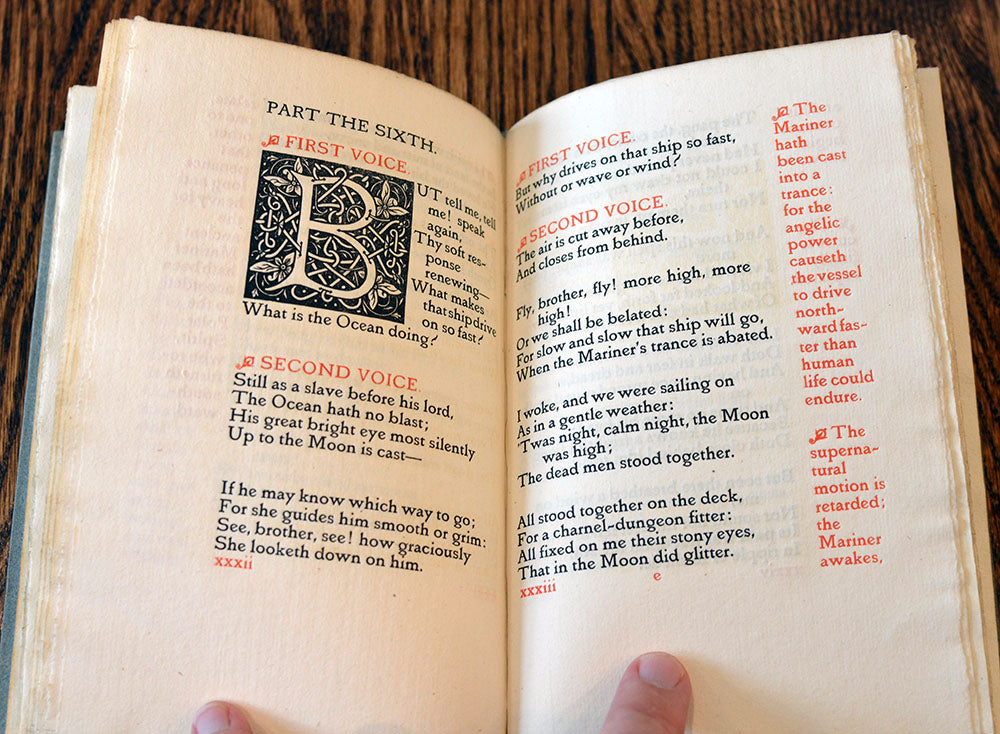 PART THE SIXTH.
FIRST VOICE.
BUT tell me, tell
me! speak
again,
Thy soft res-
ponse
renewing—
What makes
that ship drive
on so fast?
What is the Ocean doing?
SECOND VOICE.
Still as a slave before his lord,
The Ocean hath no blast;
His great bright eye most silently
Up to the Moon is cast—
If he may know which way to go;
For she guides him smooth or grim:
See, brother, see! how graciously
She looketh down on him.
xxxii
FIRST VOICE.
But why drives on that ship so fast,
Without or wave or wind?
SECOND VOICE.
The air is cut away before,
And closes from behind.
Fly, brother, fly! more high, more
high!
Or we shall be belated:
For slow and slow that ship will go,
When the Mariner's trance is abated.
I woke, and we were sailing on
As in a gentle weather:
'Twas night, calm night, the Moon
was high;
The dead men stood together.
All stood together on the deck,
For a charnel-dungeon fitter:
All fixed on me their stony eyes,
That in the Moon did glitter.
xxxiii
e
The
Mariner
hath
been cast
into a
trance:
for the
angelic
power
causeth
the vessel
to drive
north-
ward fas-
ter than
human
life could
endure.
The
superna-
tural
motion is
retarded;
the
Mariner
awakes,